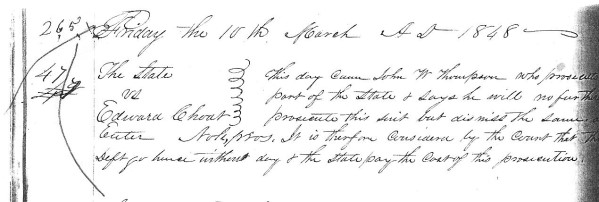 265 Friday the 10th March A D 1848
47 The State This day came John W Thompson who prosecutes
vs part of the State & says he will no further
Edward Choat prosecute this suit but dismiss the same &
Enter Nole, pros. It is therefore considerd by the Court that the
Deft go hence without day & the State pay the Cost of this prosecution